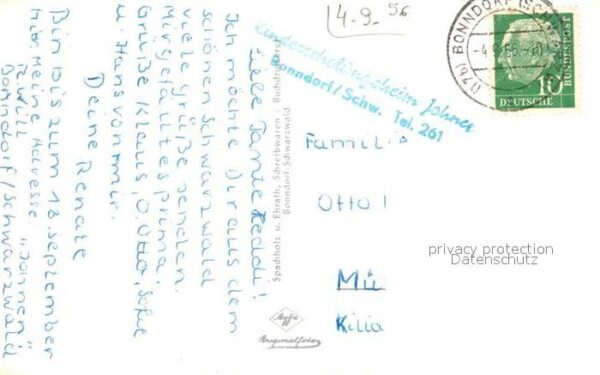 4-9. 56
(17b) BONNDORF (SCHWARZW)
-4.9.56.-10
DEUTSCHE
BUNDESPOST
10
Kindererholungsheim Johnen
Bonndorf/Schw. Tel. 261
Liebe Tante Heddi!
Ich möchte Dir aus dem
schönen Schwarzwald
viele Grüße senden.
Mir gefällt es prima.
Grüße Klaus, O. Otto, Sofie
u. Hans von mir.
Deine Renate
Bin bis zum 18. september
hir. Meine Adresse:
"Johnen"
Bonndorf/Schwarzwald
Spachholz u. Ehrath, Schreibwaren
Bonndorf-Schwarzwald
Agfa
Originalfoto
Familie
Otto
Mü
Kilia
privacy protection
Datenschutz